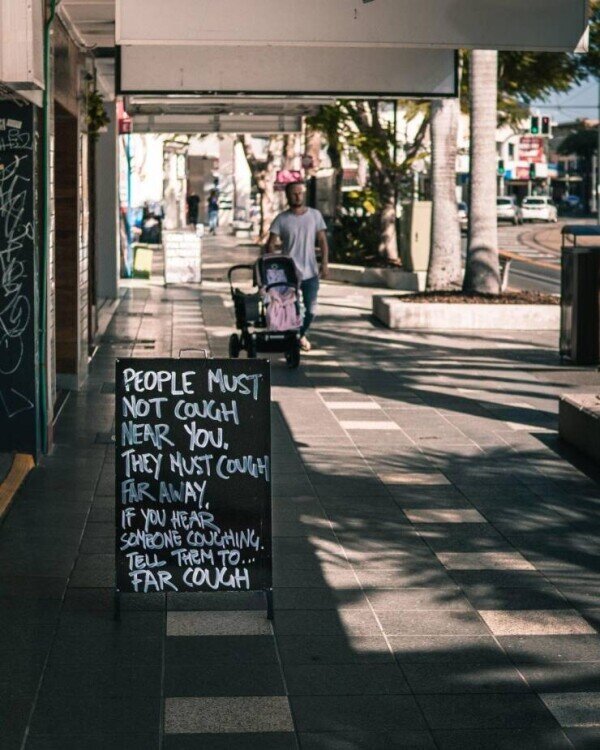 PEOPLE MUST
NOT COUGH
NEAR YOU.
THEY MUST COUGH
FAR AWAY.
IF YOU HEAR
SOMEONE COUGHING.
TELL THEM TO...
FAR COUGH